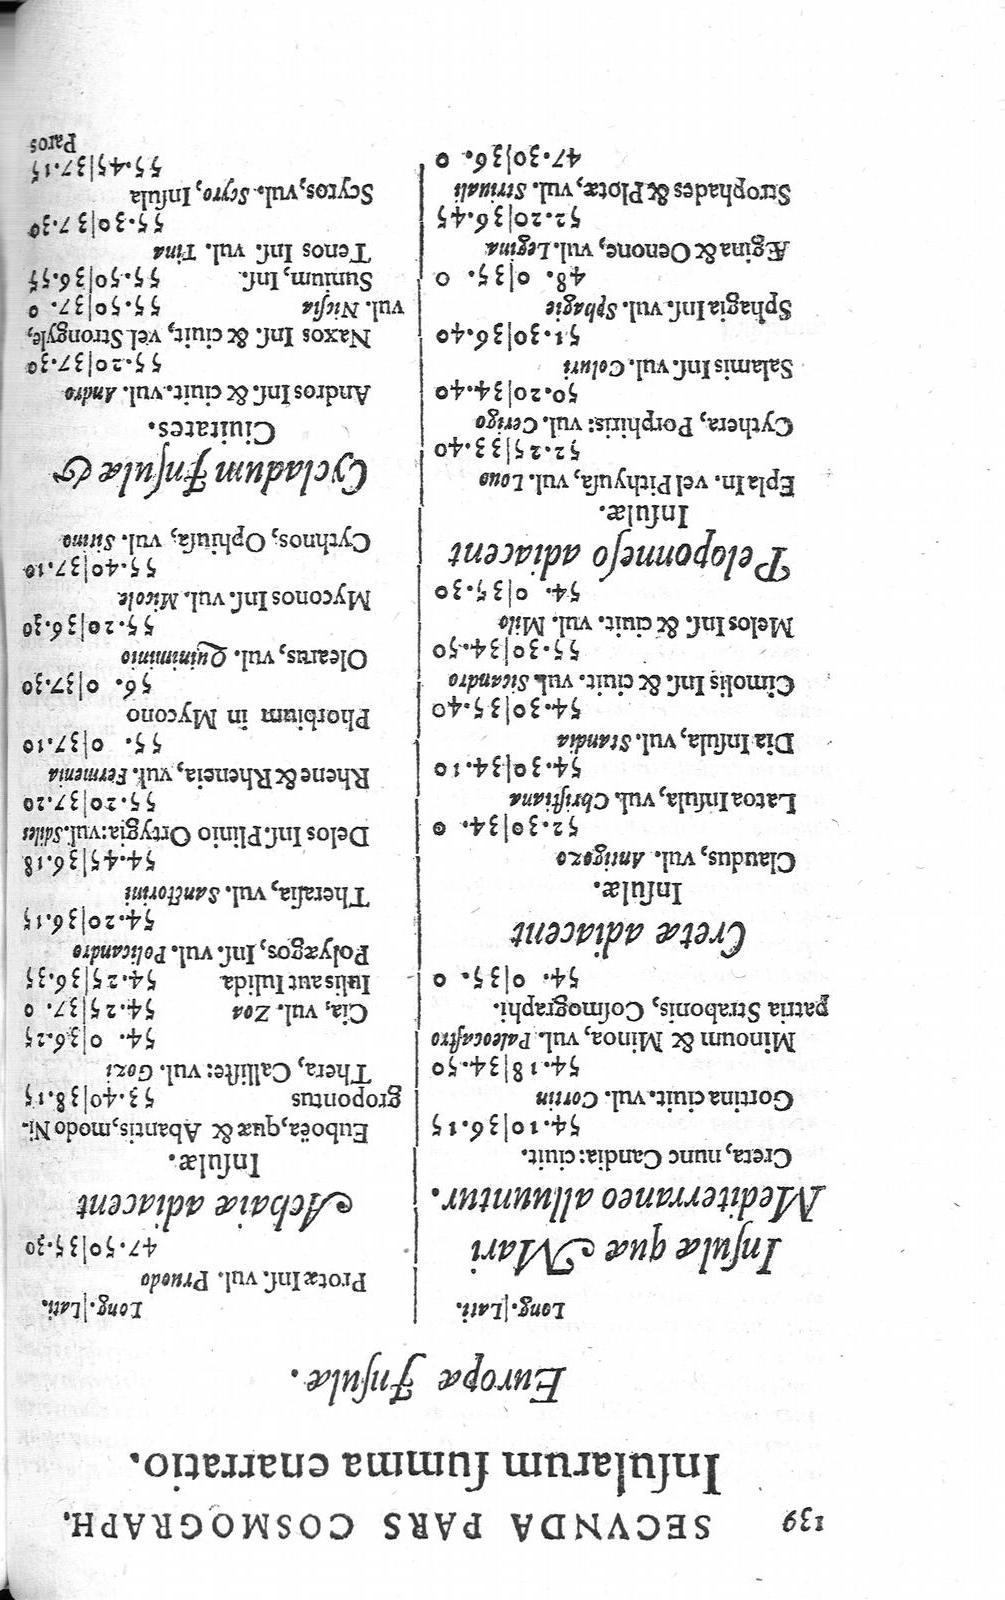 139 SECVNDA PARS COSMOGRAPH.
Inſularum ſumma enarratio.
Europæ Inſulæ.
Long.|Lati.
Inſulæ quæ Mari
Mediterraneo alluuntur.
Creta, nunc Candia: ciuit.
54.10|36.15
Gortina ciuit. vul. Cortin
54.18|34.50
Minoum & Minoa, vul. Paleocaſtro
patria Strabonis, Coſmographi.
54. 0|35. 0
Cretæ adiacent
Inſulæ.
Claudus, vul. Antigozo
52.30|34. 0
Latoa Inſula, vul. Chriſtiana
54.30|34.10
Dia Inſula, vul. Standia
54.30|35.40
Cimolis Inſ. & ciuit. vul. Sicandro
55.30|34.50
Melos Inſ. & ciuit. vul. Milo
54. 0|35.30
Peloponneſo adiacent
Inſulæ.
Epla In. vel Pithyuſa, vul. Louo
52.25|33.40
Cythera, Porphiris: vul. Cerigo
50.20|34.40
Salamis Inſ. vul. Coluri
51.30|36.40
Sphagia Inſ. vul. Sphagie
48. 0|35. 0
Ægina & Oenone, vul. Legina
52.20|36.45
Strophades & Plotæ, vul. Striuali
47.30|36. 0
Long.|Lati.
Protæ Inſ. vul. Pruodo
47.50|35.30
Achaiæ adiacent
Inſulæ.
Euboëa, quæ & Abantis, modo Ni-
gropontus 53.40|38.15
Thera, Calliſte: vul. Gozi
54. 0|36.25
Cia, vul. Zea 54.25|37. 0
Iulis aut Iulida 54.25|36.35
Polyægos, Inſ. vul. Policandro
54.20|36.15
Theraſia, vul. Sanctorini
54.45|36.18
Delos Inſ. Plinio Ortygia: vul. Sdiles
55.20|37.20
Rhene & Rheneia, vul. Fermenia
55. 0|37.10
Phorbium in Mycono
56. 0|37.30
Olearus, vul. Quiniminio
55.20|36.30
Myconos Inſ. vul. Micole
55.40|37.10
Cythnos, Ophiuſa, vul. Sirino
Cycladum Inſulæ &
Ciuitates.
Andros Inſ. & ciuit. vul. Andro
55.20|37.30
Naxos Inſ. & ciuit, vel Strongyle,
vul. Nicſia 55.50|37. 0
Sunium, Inſ. 55.50|36.55
Tenos Inſ. vul. Tina
55.30|37.30
Scyros, vul. Scyro, Inſula
55.45|37.15
Paros